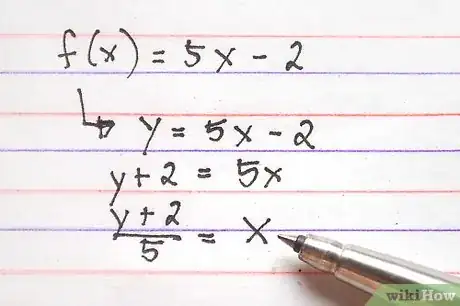 f(x) = 5x - 2
↳ y = 5x - 2
y + 2 = 5x
(y + 2)/5 = x
wikiHow